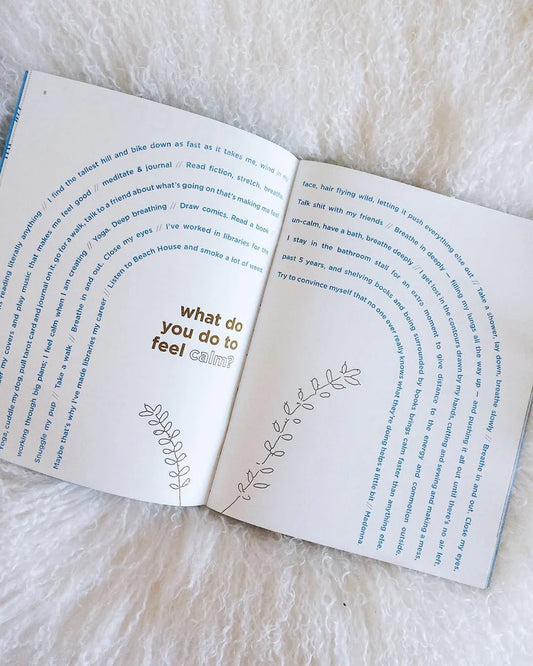 reading literally anything // I find the tallest hill and bike down as fast as it takes me, wind in my face, hair flying wild, letting it push everything else out // Take a shower, lay down, breathe slowly // Breathe in and out. Close my eyes,
my covers and play music that makes me feel good // meditate & journal // Read fiction, stretch, breathe, Talk shit with my friends // Breathe in deeply — filling my lungs all the way up — and pushing it all out until there's no air left,
yoga, cuddle my dog, pull tarot card and journal on it, go for a walk, talk to a friend about what's going on that's making me feel un-calm, have a bath, breathe deeply // I get lost in the contours drawn by my hands, cutting and sewing and making a mess,
working through big plans; I feel calm when I am creating // Yoga. Deep breathing // Draw comics. Read a book // I stay in the bathroom stall for an extra moment to give distance to the energy and commotion outside.
Snuggle my pup // Take a walk // Breathe in and out. Close my eyes // I've worked in libraries for the past 5 years, and shelving books and being surrounded by books brings calm faster than anything else.
Maybe that's why I've made libraries my career // Listen to Beach House and smoke a lot of weed. Try to convince myself that no one ever really knows what they're doing helps a little bit // Madonna
what do
you do to
feel calm?